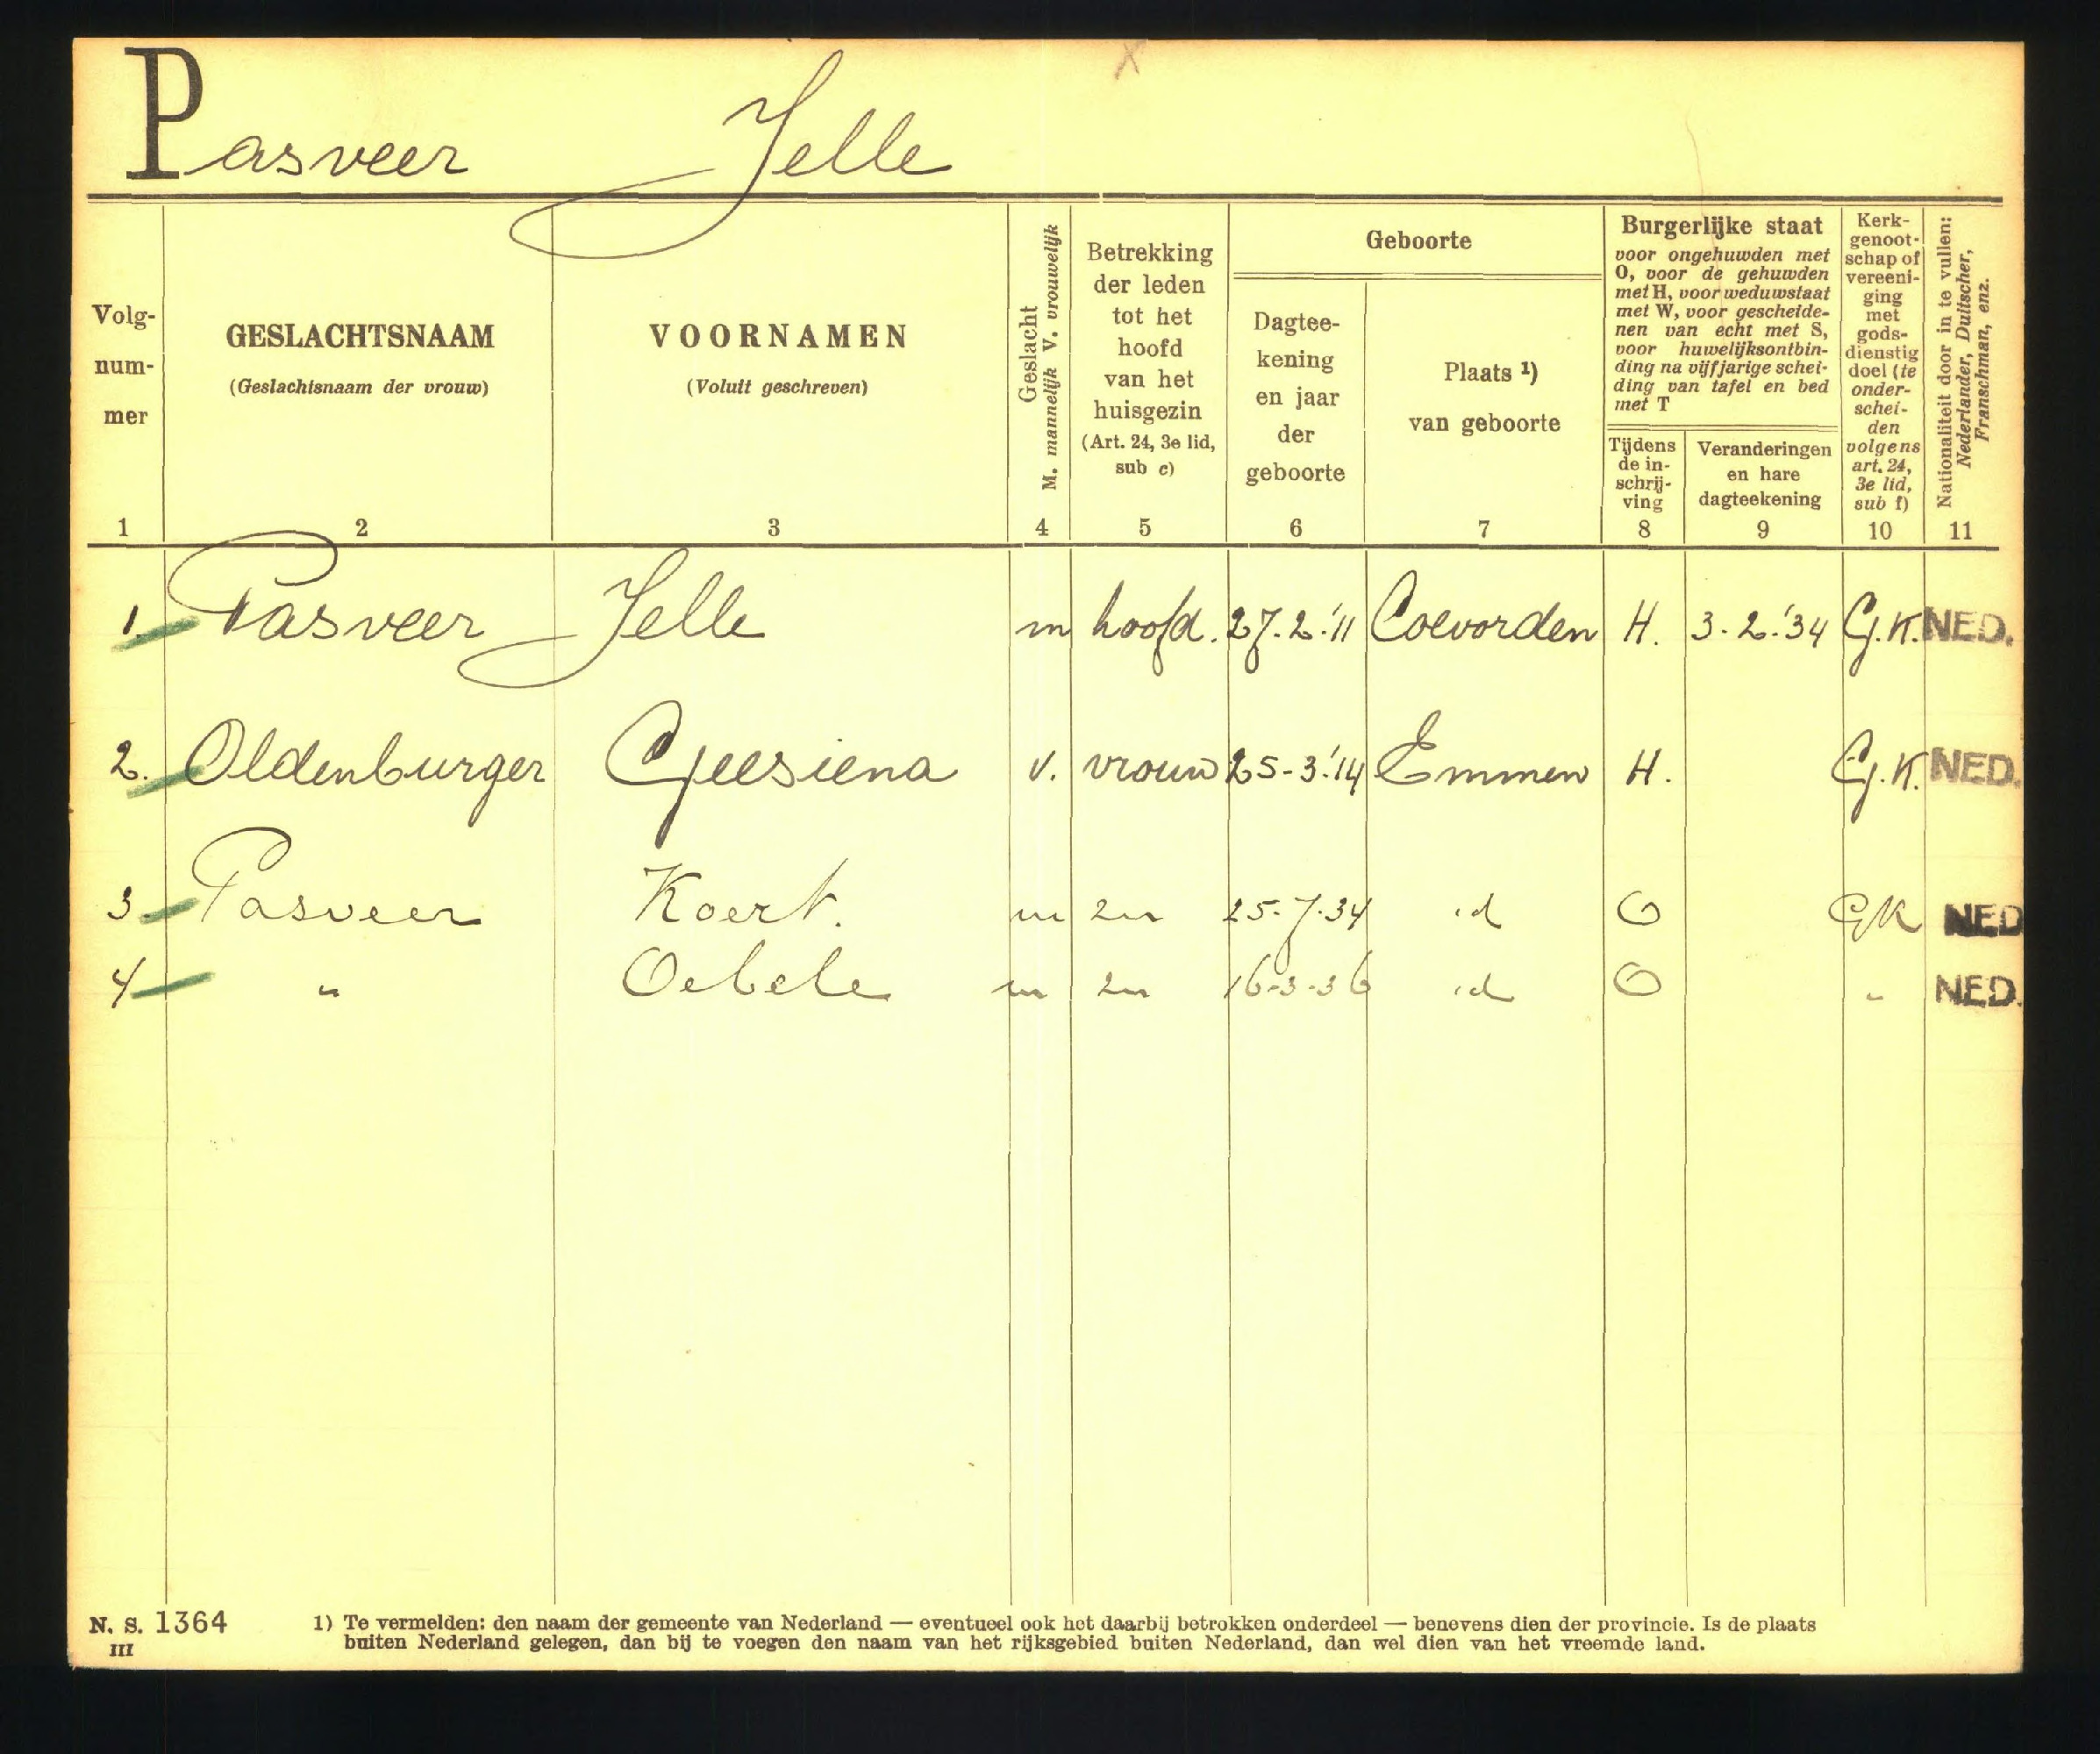 Pasveer Jelle
Volg-
num-
mer
1
GESLACHTSNAAM
(Geslachtsnaam der vrouw)
2
VOORNAMEN
(Voluit geschreven)
3
Geslacht
M. mannelijk V. vrouwelijk
4
Betrekking
der leden
tot het
hoofd
van het
huisgezin
(Art. 24, 3e lid,
sub c)
5
Geboorte
Dagtee-
kening
en jaar
der
geboorte
6
Plaats ¹)
van geboorte
7
Burgerlijke staat
voor ongehuwden met
O, voor de gehuwden
met H, voor weduwstaat
met W, voor gescheide-
nen van echt met S,
voor huwelijksontbin-
ding na vijfjarige schei-
ding van tafel en bed
met T
Tijdens
de in-
schrij-
ving
8
Veranderingen
en hare
dagteekening
9
Kerk-
genoot-
schap of
vereeni-
ging
met
gods-
dienstig
doel (te
onder-
schei-
den
volgens
art. 24,
3e lid,
sub f)
10
Nationaliteit door in te vullen:
Nederlander, Duitscher,
Franschman, enz.
11
1. Pasveer Jelle m hoofd. 27.2.'11 Coevorden H. 3.2.'34 G.K. NED.
2. Oldenburger Geesiena v. vrouw 25-3.'14 Emmen H. G.K. NED.
3 Pasveer Koert. m zn 25.7.34 id O GK NED
4 " Oebele m zn 16-3-36 id O " NED.
N. S. 1364
III
1) Te vermelden: den naam der gemeente van Nederland — eventueel ook het daarbij betrokken onderdeel — benevens dien der provincie. Is de plaats
buiten Nederland gelegen, dan bij te voegen den naam van het rijksgebied buiten Nederland, dan wel dien van het vreemde land.